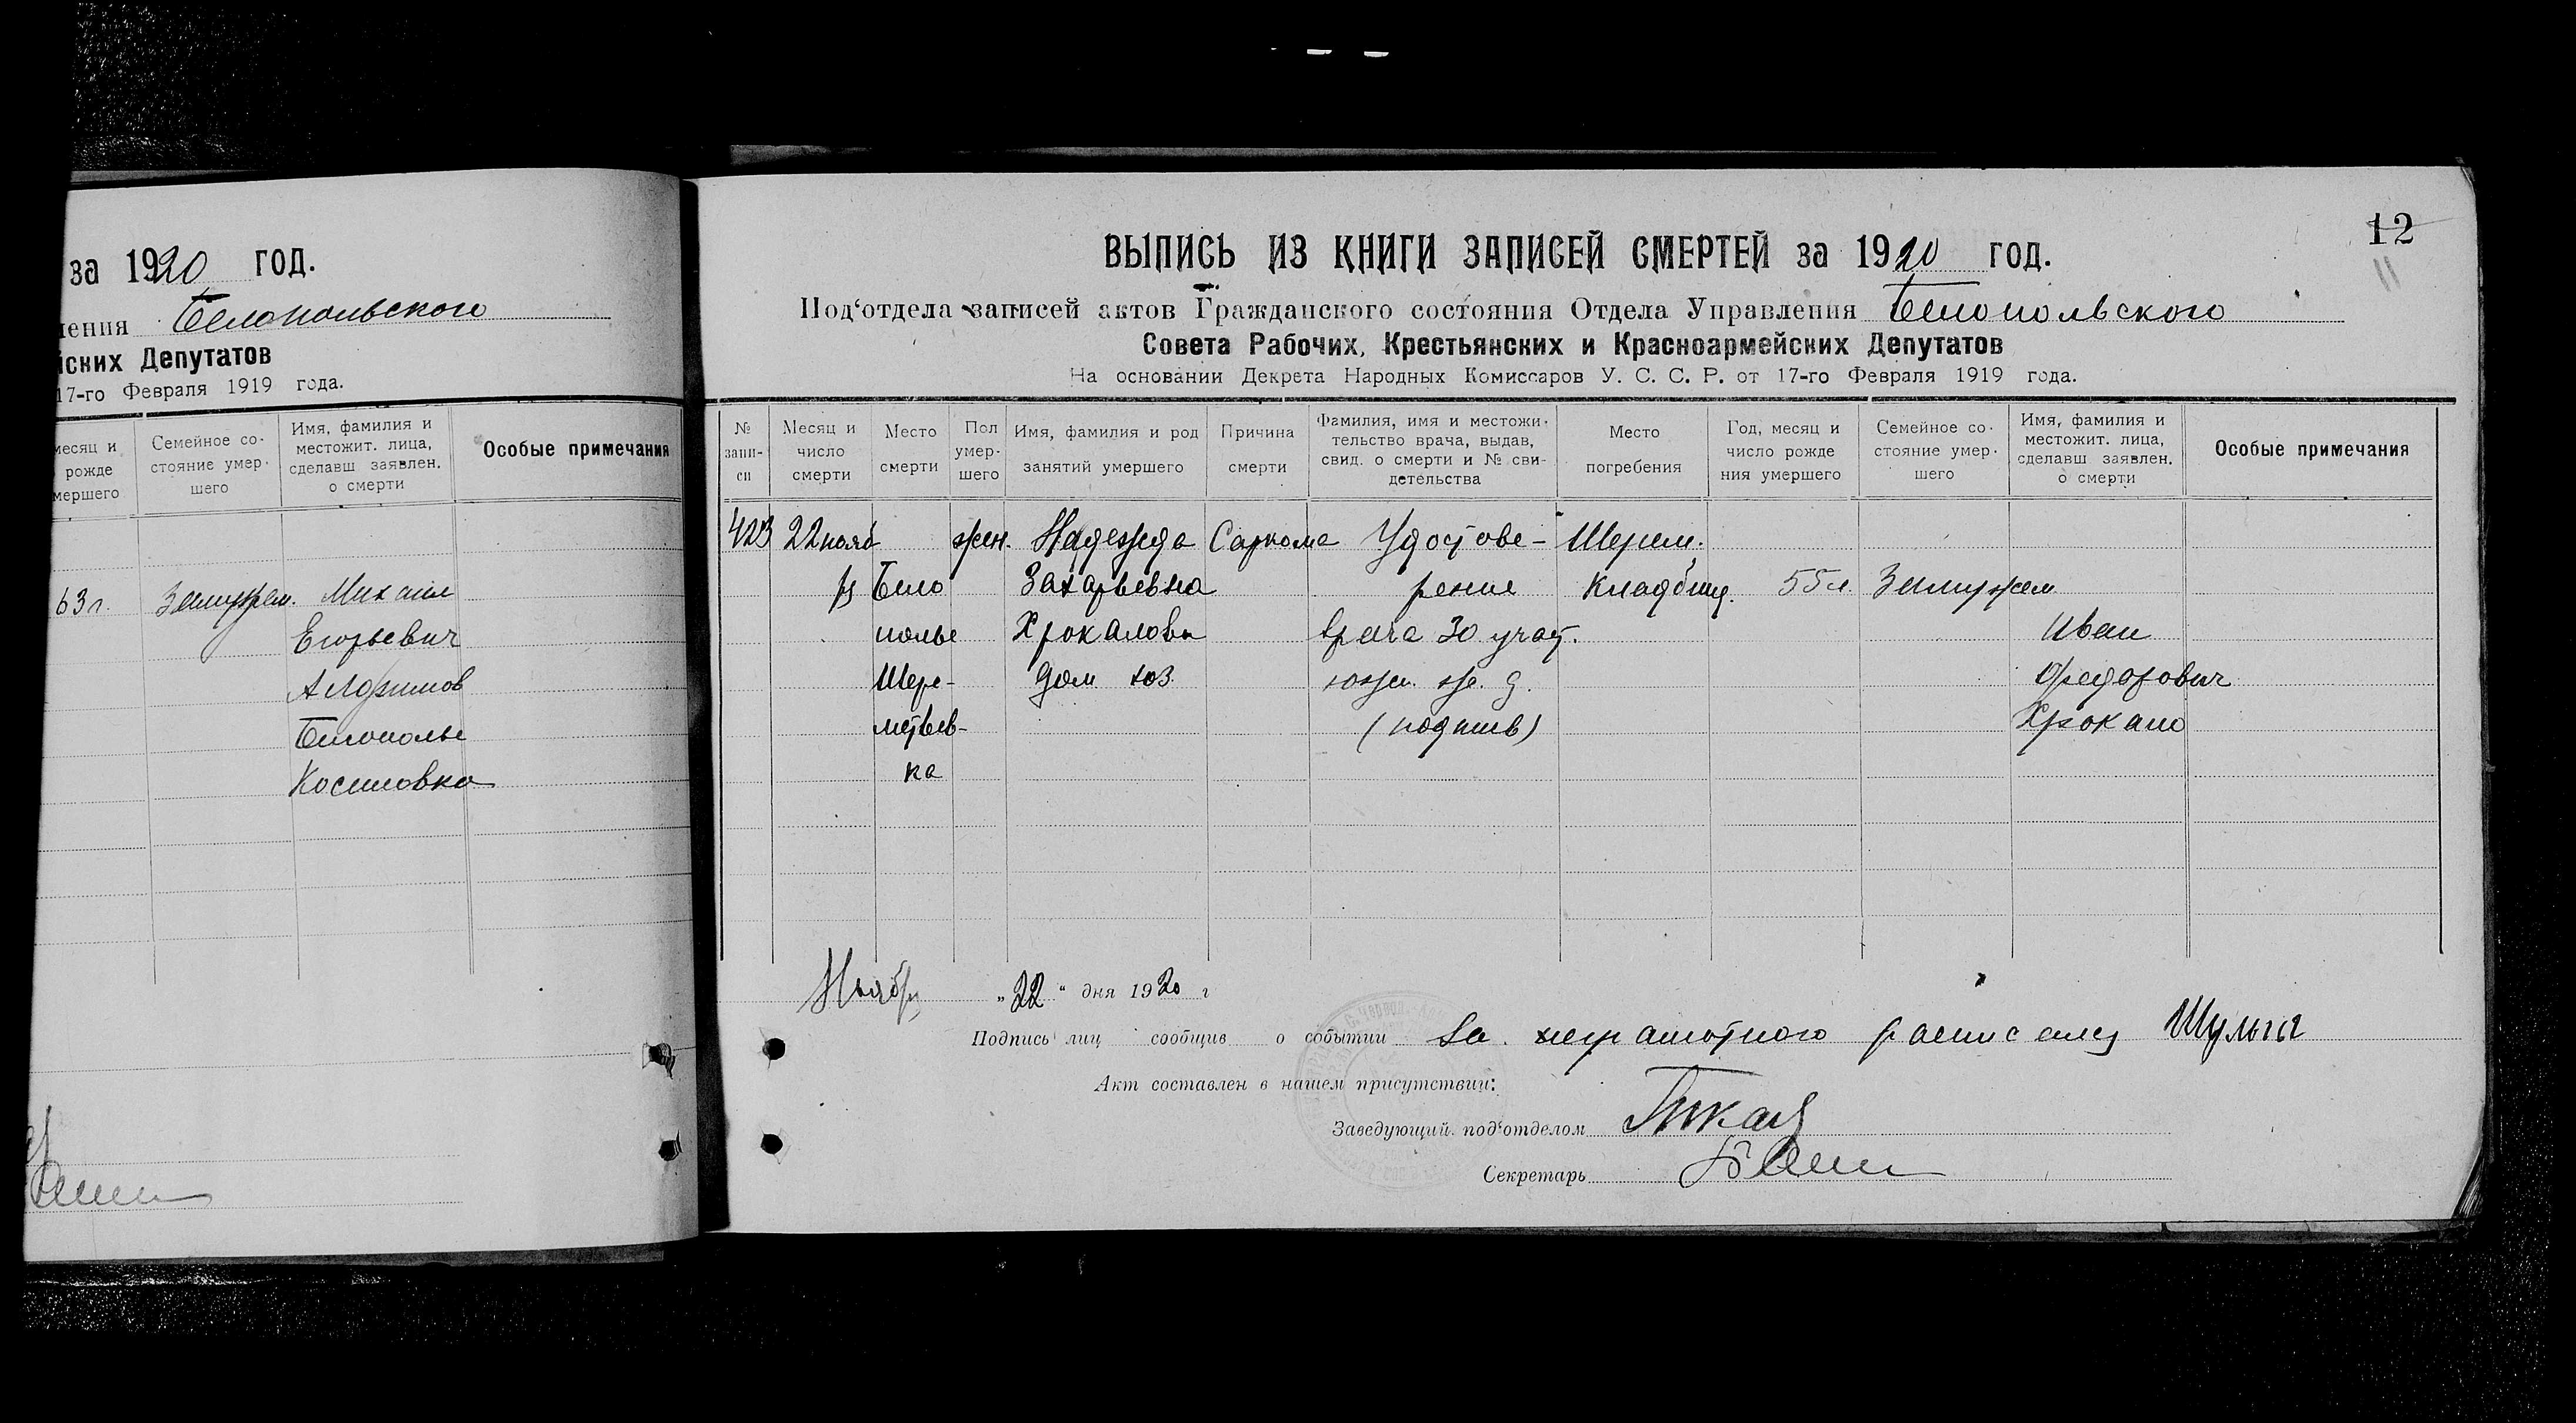 за 1920 год.
ления Белопольского
йских Депутатов
17-го Февраля 1919 года.
месяц и рожде мершего
Семейное со- стояние умер- шего
Имя, фамилия и местожит. лица, сделавш заявлен. о смерти
Особые примечания
63 г. Замужем. Михаил
Егорьевич
Белополье
Косиловка
12
11
ВЫПИСЬ ИЗ КНИГИ ЗАПИСЕЙ СМЕРТЕЙ за 1920 год.
Под‘отдела записей актов Гражданского состояния Отдела Управления Белопольского
Совета Рабочих, Крестьянских и Красноармейских Депутатов
На основании Декрета Народных Комиссаров У. С. С. Р. от 17-го Февраля 1919 года.
№ запи- си
Месяц и число смерти
Место смерти
Пол умер- шего
Имя, фамилия и род занятий умершего
Причина смерти
Фамилия, имя и местожи- тельство врача, выдав, свид. о смерти и № сви- детельства
Место погребения
Год, месяц и число рожде ния умершего
Семейное со- стояние умер- шего
Имя, фамилия и местожит. лица, сделавш заявлен. о смерти
Особые примечания
423 22 нояб жен. Надежда Саркома Удостове- Шерем.
р Бело Захарьевна рение Кладбищ. 55 л. Замужем
полье Хрокалова врача 30 участ. Иван
Шере- дом хоз. южн. ж. д. Федорович
метьев- (подпись) Хрокало
ка
Ноябр „22“ дня 1920 г
Подпись лиц сообщив о событии За неграмотного расписалсь Шульга
Акт составлен в нашем присутствии:
Заведующий под‘отделом
Секретарь